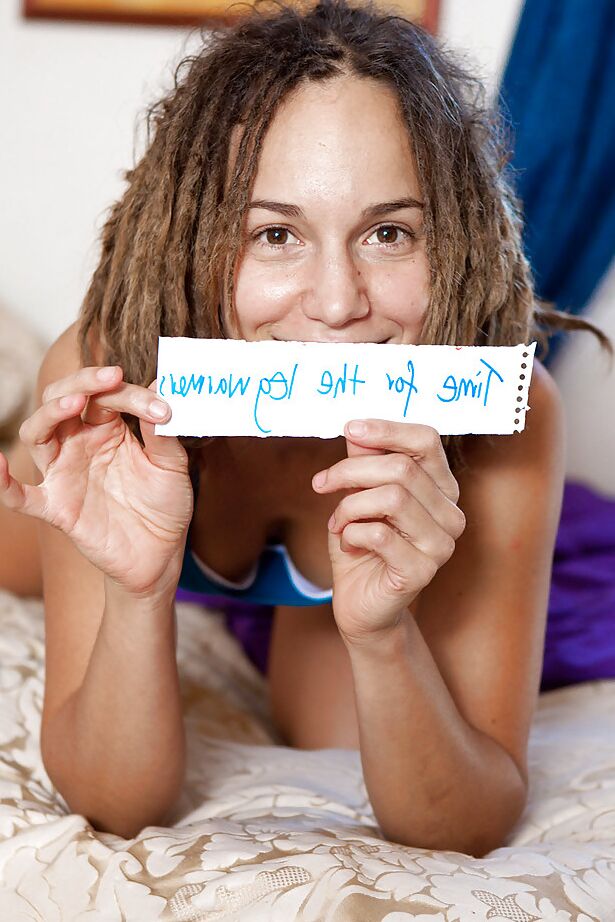 Time for the leg warmers